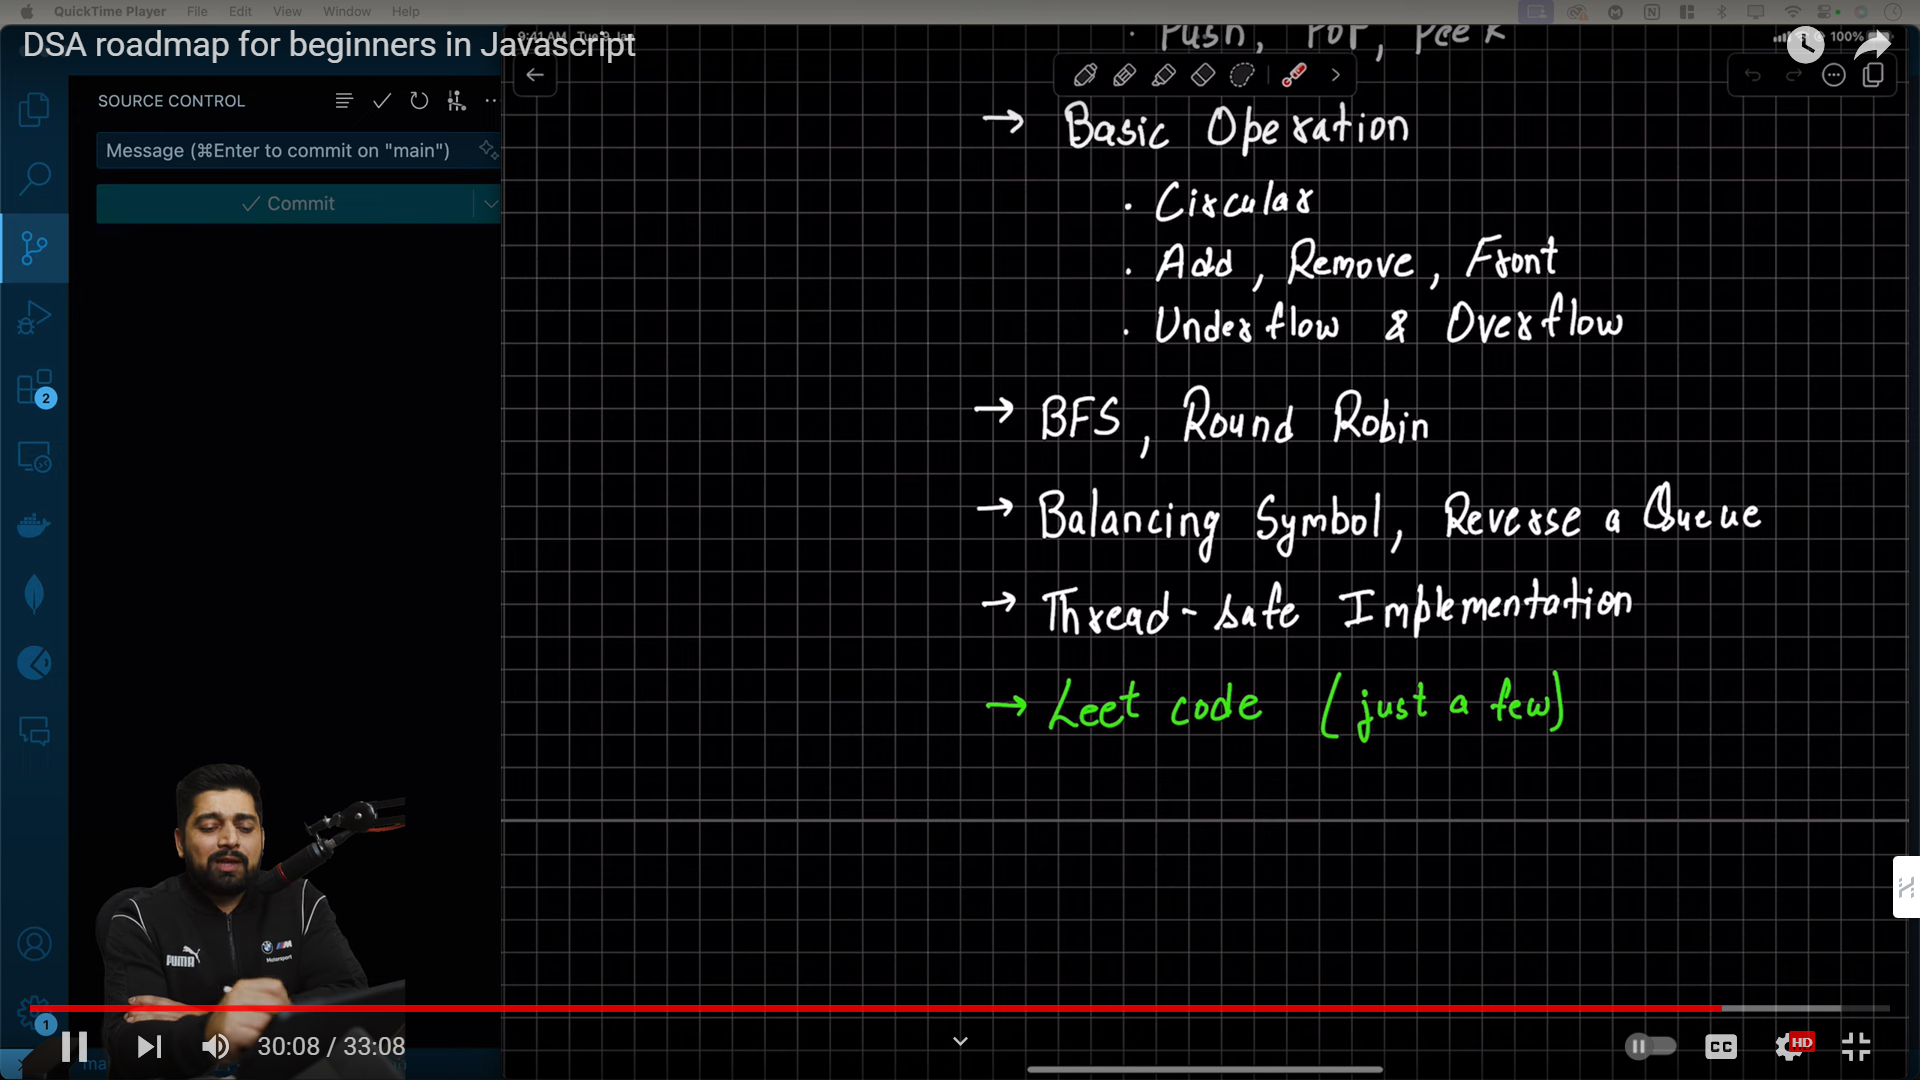 QuickTime Player File Edit View Window Help
DSA roadmap for beginners in Javascript
9:41 AM Tue 9 Jan
100%
Push, Pop, Peek
SOURCE CONTROL
Message (⌘Enter to commit on "main")
Commit
→ Basic Operation
· Circular
· Add, Remove, Front
· Underflow & Overflow
→ BFS, Round Robin
→ Balancing Symbol, Reverse a Queue
→ Thread-safe Implementation
→ Leet code (just a few)
2
PUMA
M
Motorsport
1
30:08 / 33:08
CC
HD
ma